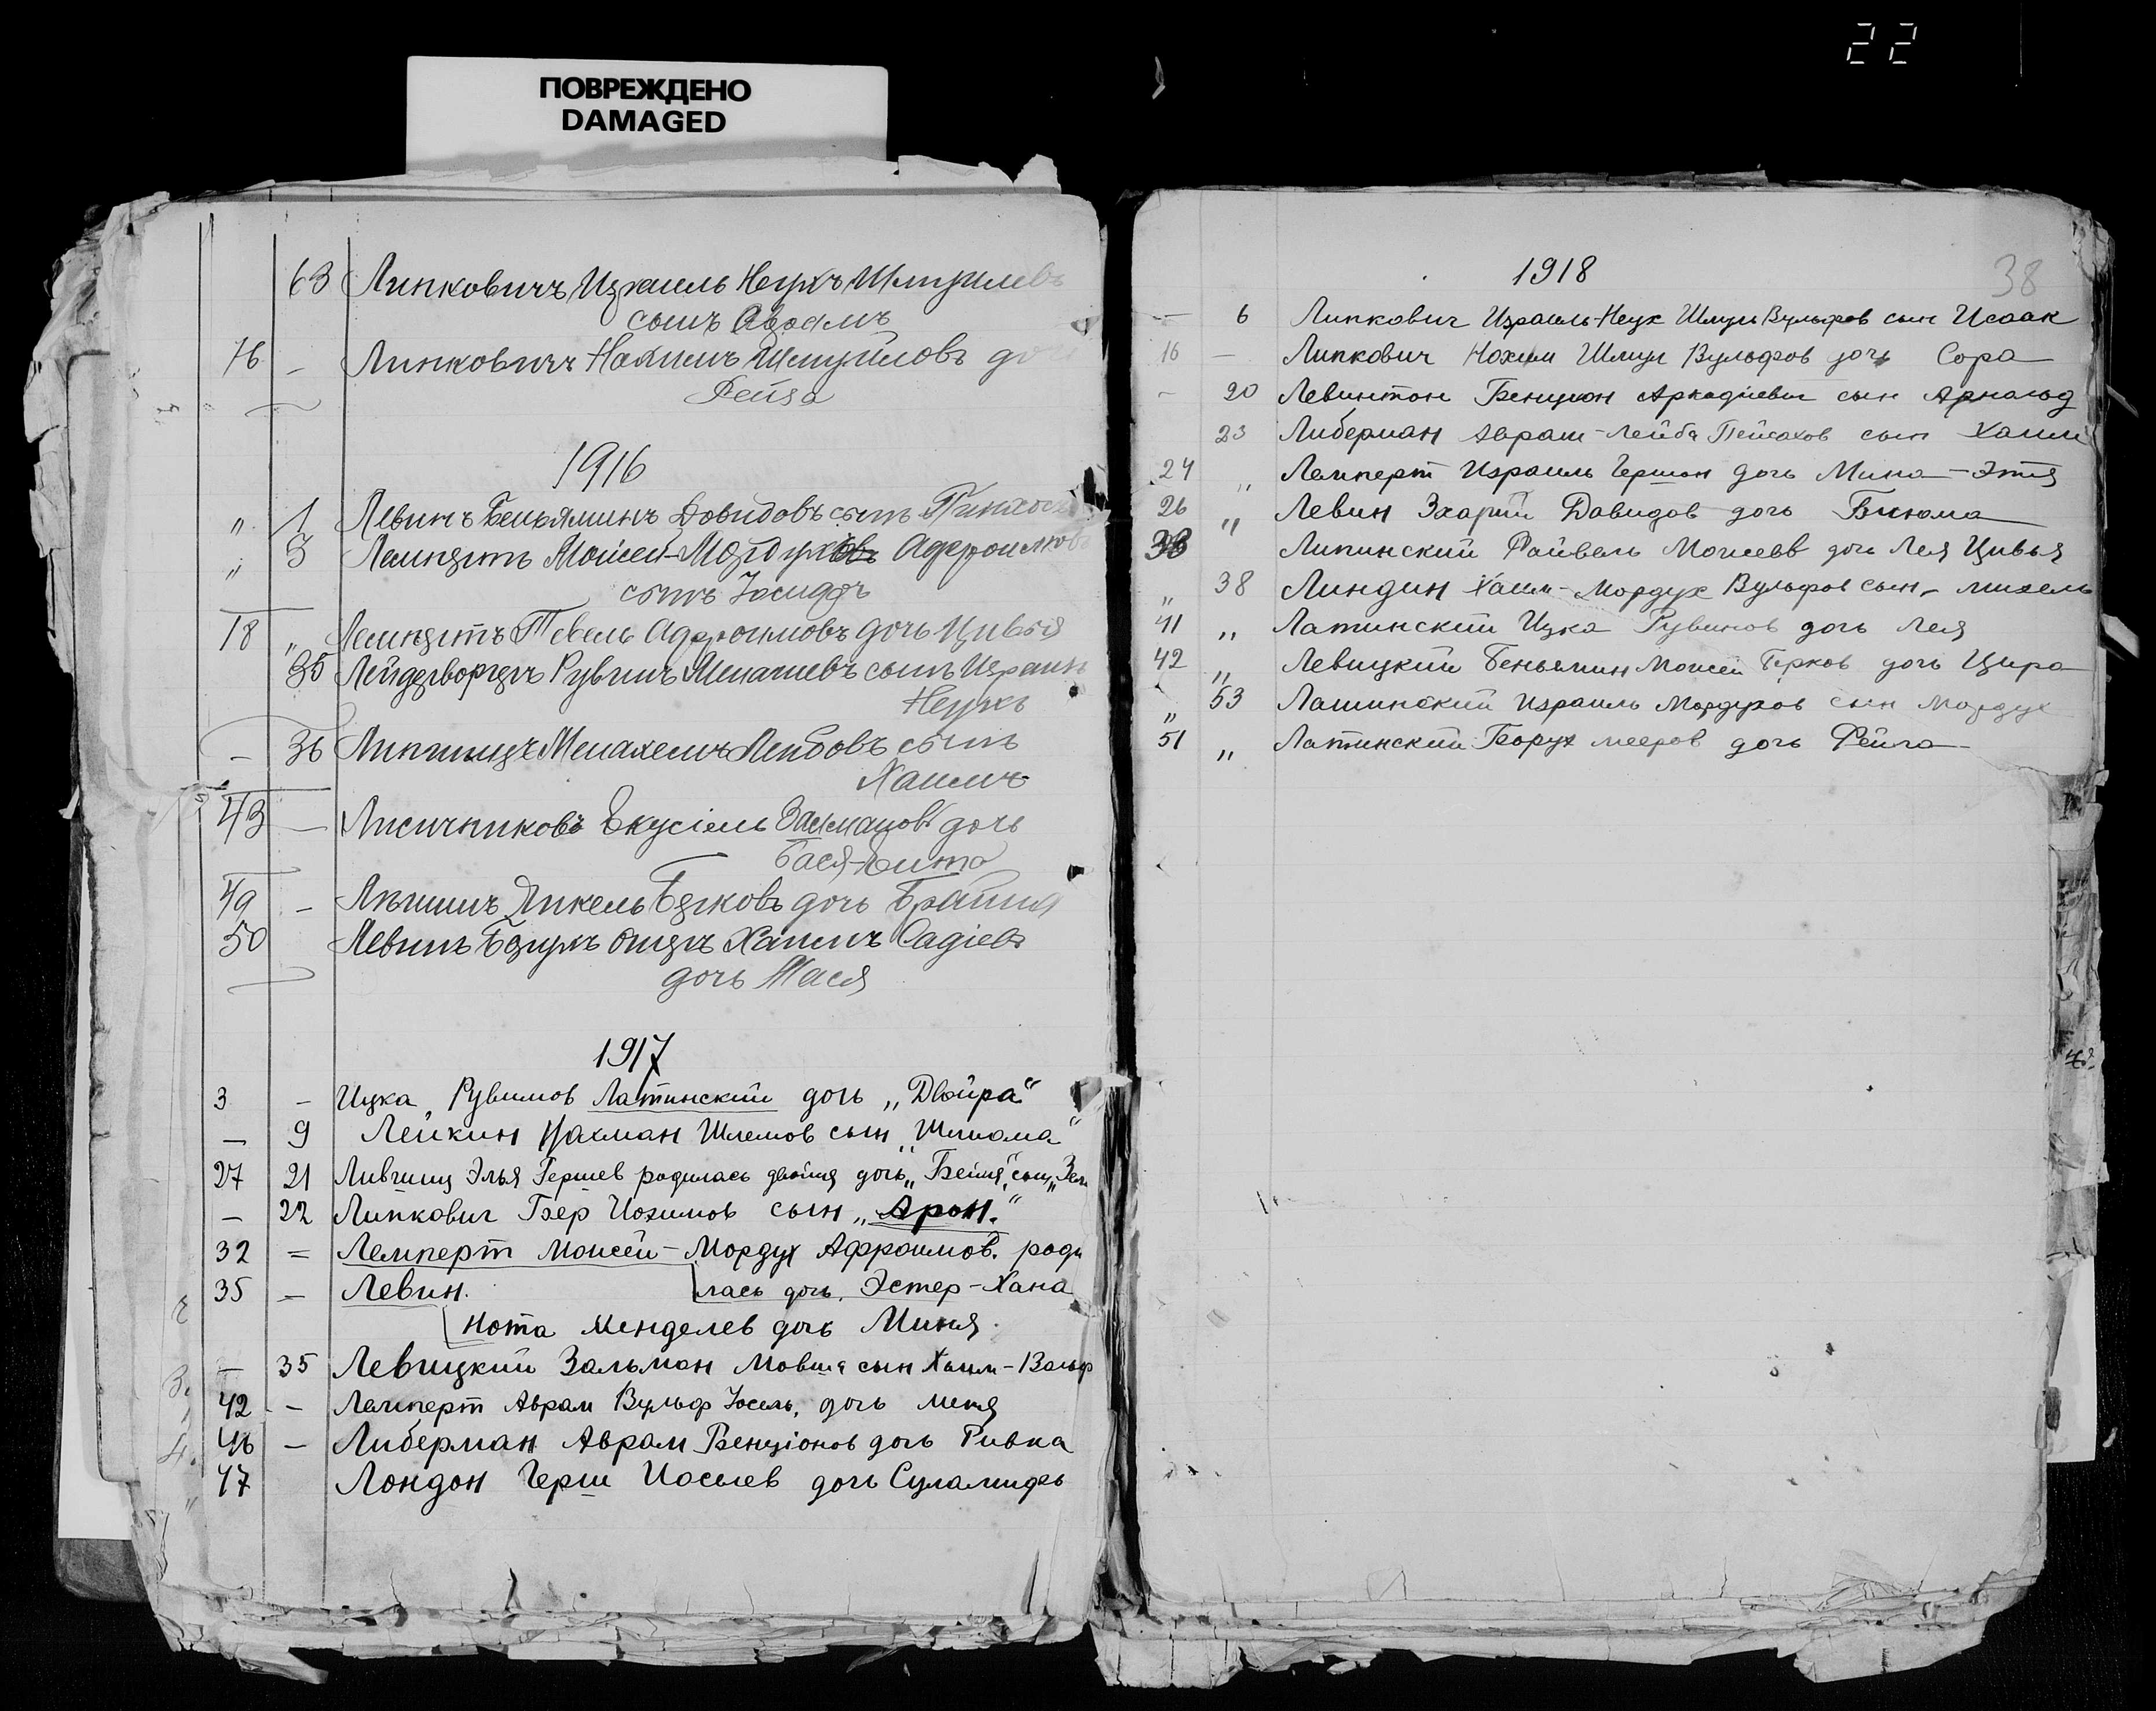 22
ПОВРЕЖДЕНО
DAMAGED
63 Липковичъ Израиль Неухъ Шмуилевъ
сынъ Абрамъ
76 - Липковичъ Нахимъ Шмуиловъ дочь
Фейга
1916
" 1 Левинъ Беньяминъ Довидовъ сынъ Пинхосъ
" 3 Лемпертъ Моисей-Мордухъ Афроимовъ
сынъ Іосифъ
18 " Лемпертъ Тевель Афроимовъ дочь Цивья
35 Лейдерворгеръ Рувинъ Меначиевъ сынъ Израиль
Неухъ
- 36 Липшицъ Менахемъ Лейбовъ сынъ
Хаимъ
43 - Лисичниковъ Екусіель Залмановъ дочь
Бася-Гита
49 - Лившинъ Янкель Берковъ дочь Брайна
50 Левинъ Борухъ Ошеръ Хаимъ Садіевъ
дочь Мася
1917
3 - Ицка Рувимов Латинский дочь „Двойра“
- 9 Лейкин Нахман Шлемов сын „Шлиома“
27 21 Лившиц Элья Гершев родилась двойня дочь „Бейля“, сын „Зел
- 22 Липкович Бер Иохимов сын „Арон.“
32 = Лемперт Моисей-Мордух Афроимов. роди
35 - Левин. лась дочь. Эстер-Хана
Нота Менделев дочь Миня.
- 35 Левицкий Зальман Мовша сын Хаим-Вольф
42 - Лемперт Аврам Вульф Іосель, дочь Меня
46 - Либерман Аврам Бенціонов дочь Ривка
47 Лондон Герш Иоселев дочь Суламифь
1918
38
- 6 Липкович Израиль-Неух Шмуль Вульфов сын Исаак
16 - Липкович Нохим Шмул Вульфов дочь Сора
- 20 Левинтон Бенцион Аркадіевич сын Арнольд
23 Либерман Аврам-Лейба Пейсахов сын Хаим
24 " Лемперт Израиль Гершон дочь Мина-Этя
26 " Левин Захарий Давидов дочь Бьюма
38 Липинский Файвель Моисеев дочь Лея Цивья
" 38 Линдин Хаим-Мордух Вульфов сын - Михель
41 " Латинский Ицка Рувинов дочь Лея
42 " Левицкий Беньямин Моисей Герков дочь Цира
" 53 Латинский Израиль Мордухов сын Мордух
51 " Латинский Борух Мееров дочь Фейга